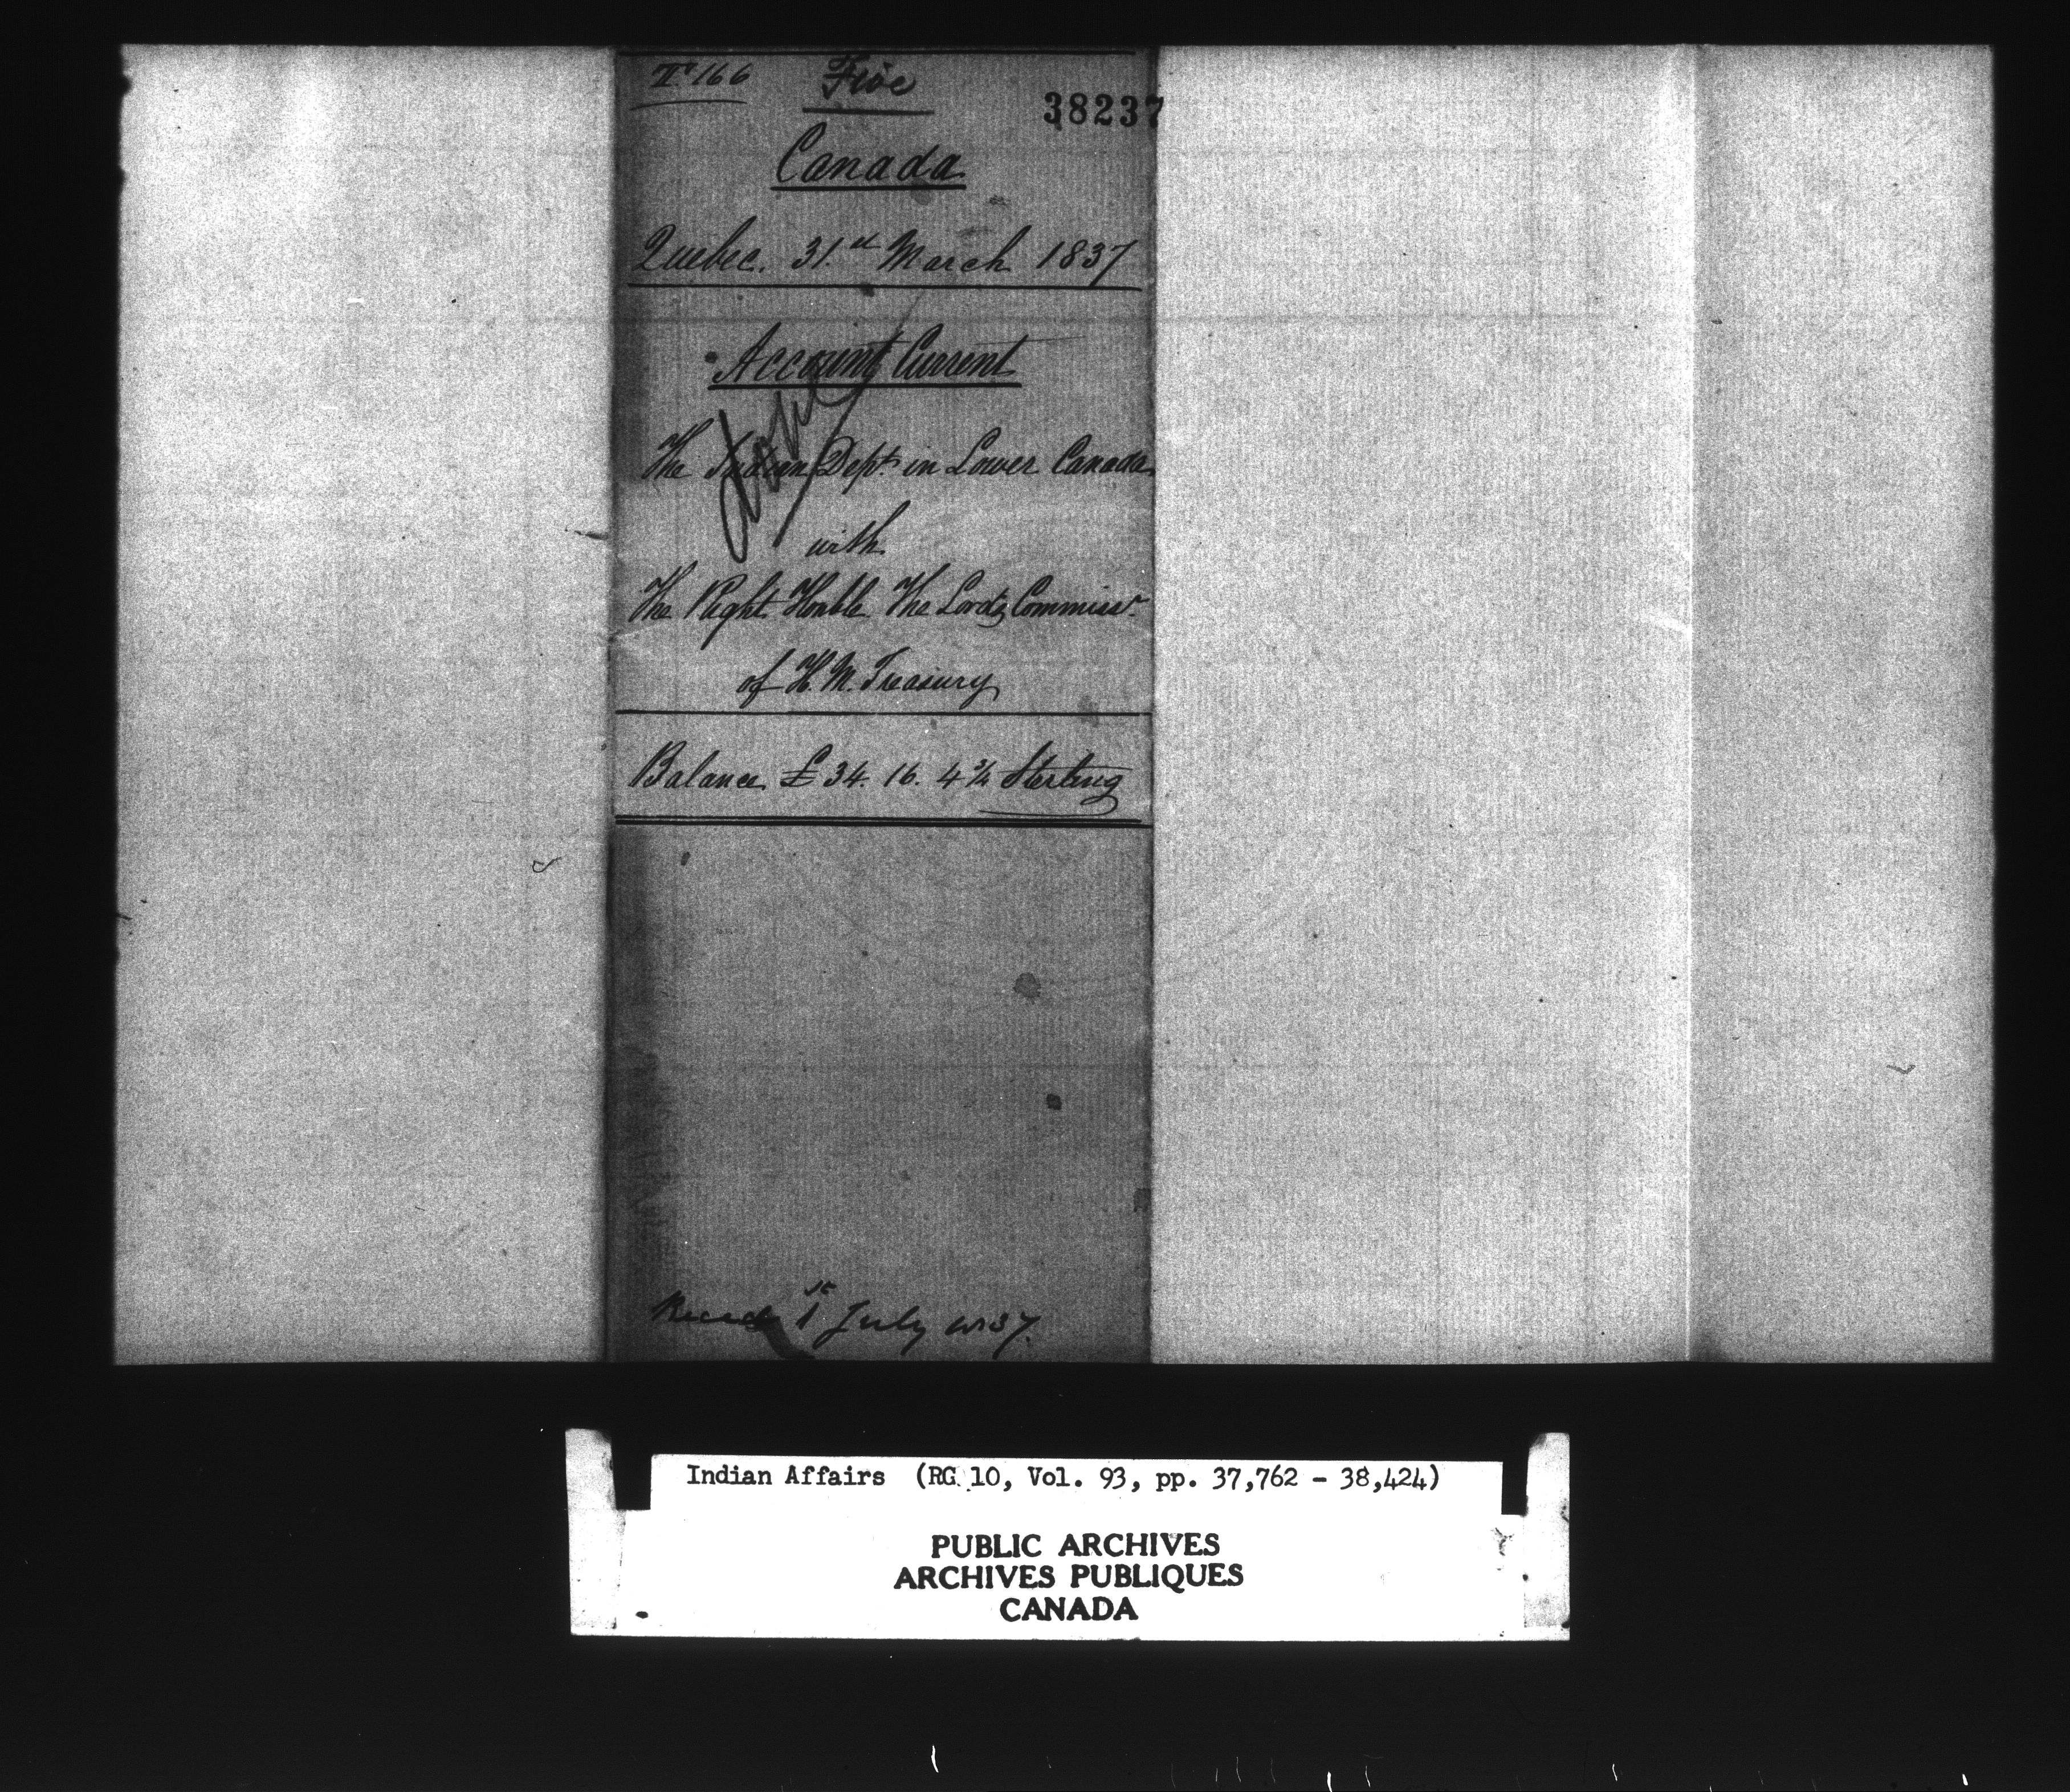 166 Five
38237
Canada
Quebec. 31.st March 1837
Account Current
The Indian Dept. in Lower Canada
with
The Right Honble The Lords Commissrs
of H. M. Treasury
Balance £ 34. 16. 4 3/4 Sterling
1st July 1837.
Indian Affairs (RG 10, Vol. 93, pp. 37,762 - 38,424)
PUBLIC ARCHIVES
ARCHIVES PUBLIQUES
CANADA